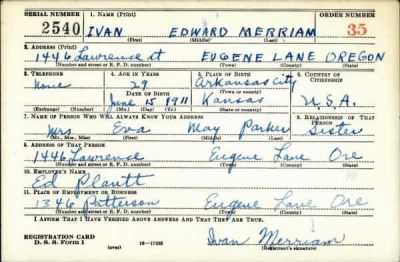 SERIAL NUMBER 1. NAME (Print) ORDER NUMBER
2540 IVAN EDWARD MERRIAM 35
(First) (Middle) (Last)
2. ADDRESS (Print)
1446 Lawrence st EUGENE LANE OREGON
(Number and street or R. F. D. number) (Town) (County) (State)
3. TELEPHONE 4. AGE IN YEARS 5. PLACE OF BIRTH 6. COUNTRY OF CITIZENSHIP
None 29 Arkansas City
DATE OF BIRTH (Town or county)
June 15 1911 Kansas U.S.A.
(Exchange) (Number) (Mo.) (Day) (Yr.) (State or country)
7. NAME OF PERSON WHO WILL ALWAYS KNOW YOUR ADDRESS 8. RELATIONSHIP OF THAT PERSON
Mrs Eva May Parker Sister
(Mr., Mrs., Miss) (First) (Middle) (Last)
9. ADDRESS OF THAT PERSON
1446 Lawrence Eugene Lane Ore
(Number and street or R. F. D. number) (Town) (County) (State)
10. EMPLOYER'S NAME
Ed
11. PLACE OF EMPLOYMENT OR BUSINESS
1346 Patterson Eugene Lane Ore
(Number and street or R. F. D. number) (Town) (County) (State)
I AFFIRM THAT I HAVE VERIFIED ABOVE ANSWERS AND THAT THEY ARE TRUE.
REGISTRATION CARD
D. S. S. Form 1 (over) 16—17105 Ivan Merriam
(Registrant's signature)